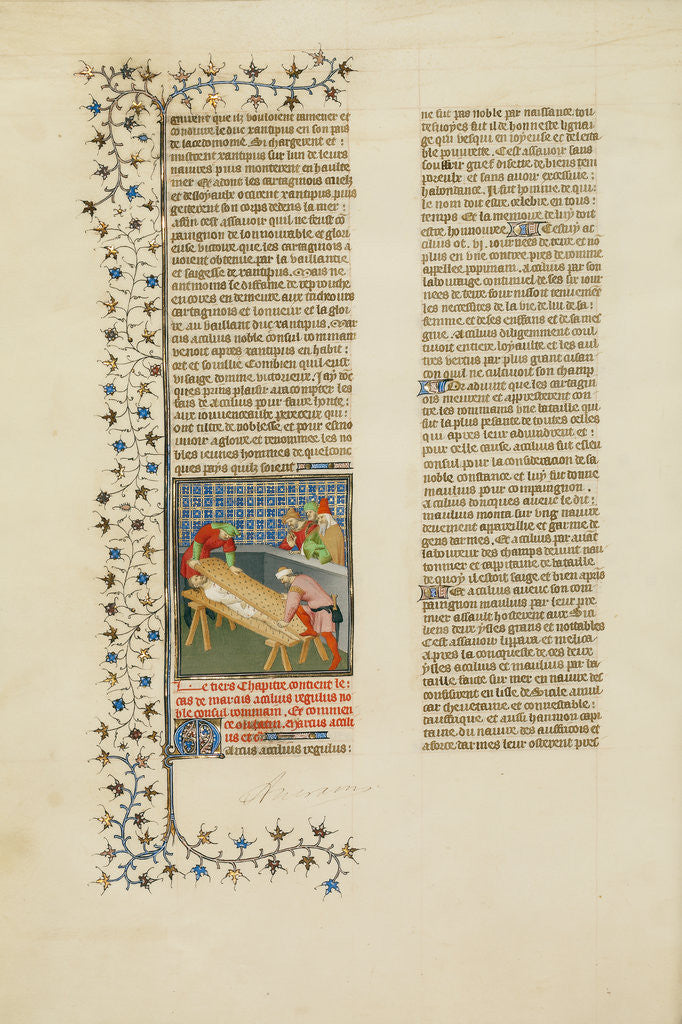 gnirent que ilz vouloient ramener et
conduire le duc xantipus en son pais
de lacedomome. Si chargerent et :
mistrent xantipus sur lun de leurs
nauires puis monterent en haulte
mer Et adont les cartaginois cruelz
et desloyaulx occirent xantipus puis
getterent son corps dedens la mer :
afin cest assauoir quil ne feust co
paingnon de honnourable et glori
euse victoire que les cartaginois a
uoient obtenue par la vaillance
et saigesse de xantipus. Mais ne
antmoins le diffame de reprouche
encores en demeure aux tricheurs
cartaginois et lonneur et la gloi
re au vaillant duc xantipus. Mar
cus actilius noble consul rommain
venoit apres xantipus en habit :
ort et soullie Combien quil eust
visaige domme victorieux. Jay doc
ques prins plaisir a racompter les
fais de actilius pour faire honte :
aux iouuenceaulx pereceux qui :
ont tiltre de noblesse et pour esmo
uuoir a gloire et renommee les no
bles ieunes hommes de quelconc
ques pays quilz soient
Le tiers Chapitre contient le :
cas de marcus actilius regulus no
ble consul rommain. Et commen
ce ou latin. Marcus actili
us et c
Marcus actilius regulus :
ne fut pas noble par naissance tou
teffoyes fut il de honneste lignai
ge qui vesqui en ioyeuse et delecta
ble pourete. Cest assauoir sans
souffrir grief disette de biens tem
porelz et sans auoir excessiue :
habondance. Il fut homme de qui
le nom doit estre celebre en tous :
temps Et la memoire de luy doit
estre honnouree. Cestuy ac
tilius ot .vi. iournees de terre et no
plus en vne contree pres de romme
appellee popinam. Actilius par son
labourage continuel de ses six iour
nees de terre fournissoit tenuement
les necessites de la vie de lui de sa :
femme et de ses enffans et de sa mes
gnie. Actilius diligemment coul
tiuoit entiere loyaulte et les aul
tres vertus par plus grant cusan
con quil ne cultiuoit son champ
Or aduint que les cartagin
ois meurent et appresterent con
tre les rommains vne bataille qui
fut la plus pesante de toutes celles
qui apres leur aduindrent et :
pour celle cause actilius fut esleu
consul pour la consideracion de sa
noble constance et luy fut donne
maulius pour compaingnon.
Actilius doncques auec le dit :
maulius monta sur vng nauire
deuement appareillie et garnie de
gens darmes. Et actilius par auant
laboureur des champs deuint nau
tonnier et cappitaine de bataille
de quoy il estoit saige et bien apris
Et actilius auec son com
paingnon maulius par leur pre
mier assault hosterent aux Sici
liens deux ysles grans et notables
Cest assauoir lippara et melica
Apres la conqueste de ces deux
ysles actilius et maulius par ba
taille faicte sur mer en nauire des
confisirent en lisle de Sicile amil
car cheuetaine et connestable :
daufrique et aussi hannon capi
taine du nauire des auffricois et
a force darmes leur osterent pres